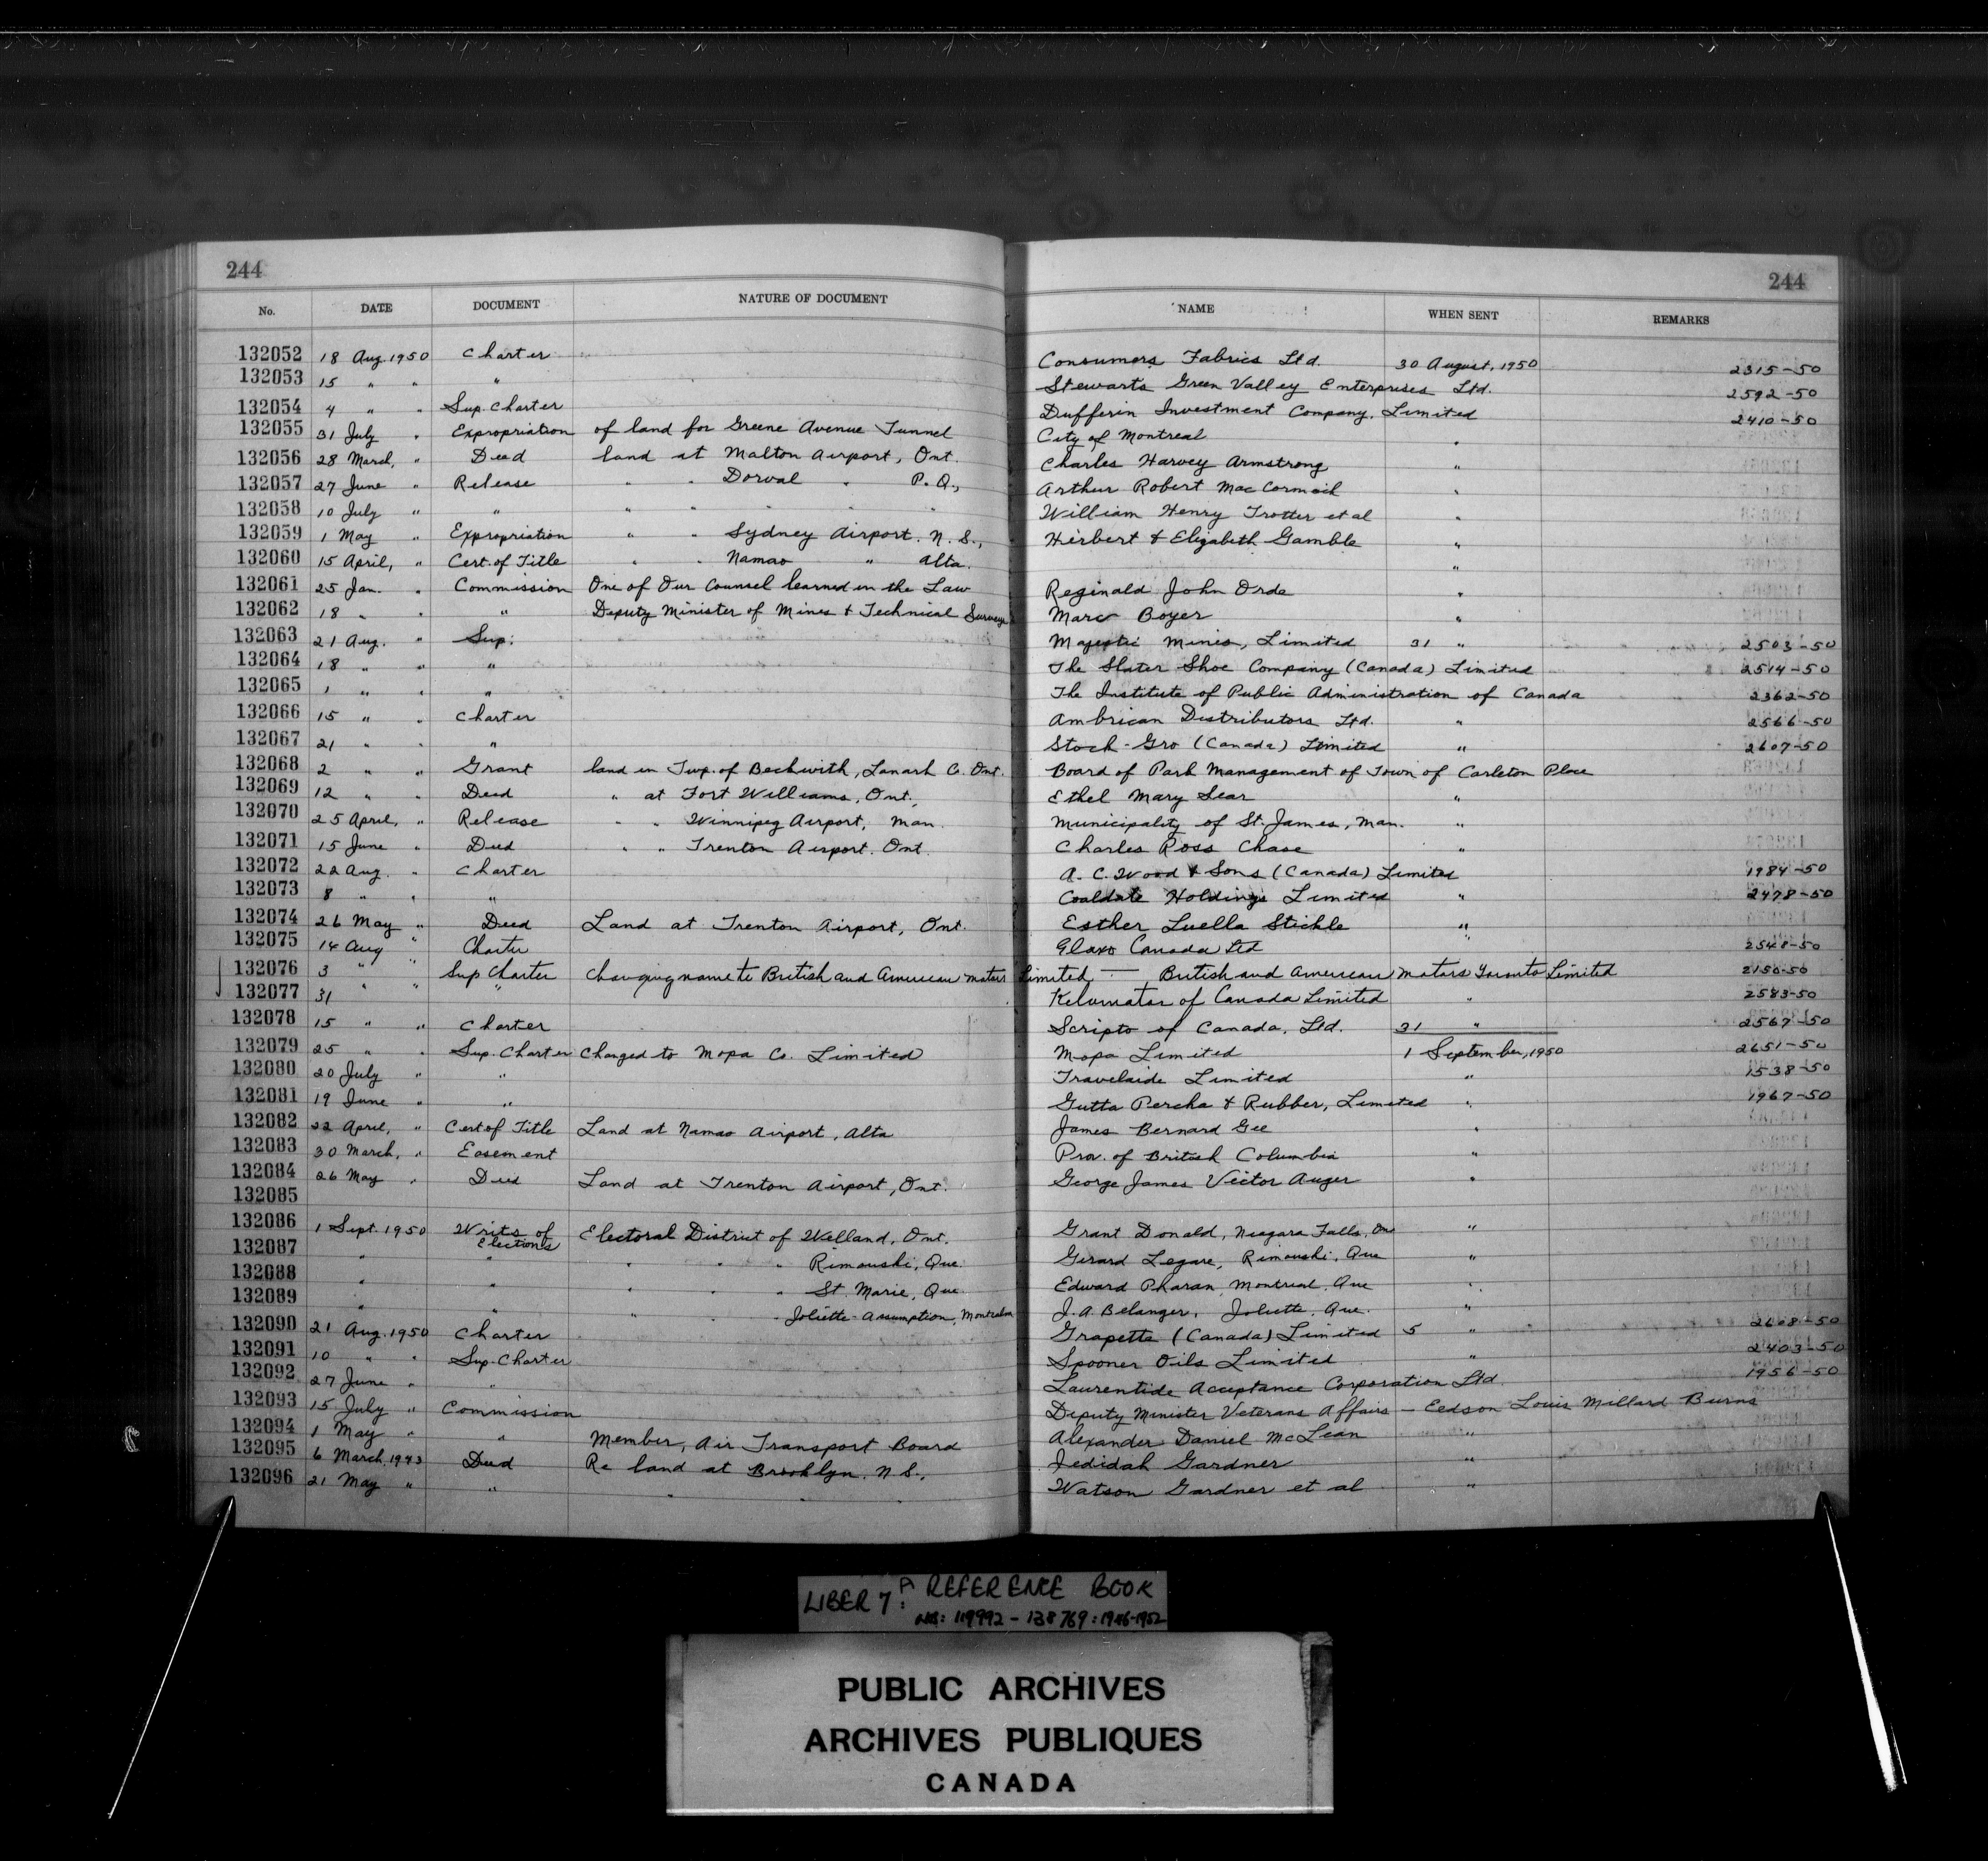 244 244
No. DATE DOCUMENT NATURE OF DOCUMENT NAME WHEN SENT REMARKS
132052 18 Aug. 1950 Charter Consumers Fabrics Ltd. 30 August, 1950 2315-50
132053 15 " " " Stewarts Green Valley Enterprises Ltd. 2592-50
132054 4 " " Sup. Charter Dufferin Investment Company, Limited 2410-50
132055 31 July " Expropriation of land for Greene Avenue Tunnel City of Montreal "
132056 28 March, " Deed land at Malton Airport, Ont. Charles Harvey Armstrong "
132057 27 June " Release " " Dorval " P.Q., Arthur Robert MacCormick "
132058 10 July " " " " " " " William Henry Trotter et al "
132059 1 May " Expropriation " " Sydney Airport, N.S., Herbert & Elizabeth Gamble "
132060 15 April, " Cert. of Title " " Namao " Alta. "
132061 25 Jan. " Commission One of Our Counsel learned in the Law Reginald John Orde "
132062 18 " " " Deputy Minister of Mines & Technical Surveys Marc Boyer "
132063 21 Aug. " Sup. Majestic Mines, Limited 31 " 2503-50
132064 18 " " " The Slater Shoe Company (Canada) Limited 2514-50
132065 1 " " " The Institute of Public Administration of Canada 2362-50
132066 15 " " Charter Ambrican Distributors Ltd. " 2566-50
132067 21 " " " Stock-Gro (Canada) Limited " 2607-50
132068 2 " " Grant land in Twp. of Beckwith, Lanark C. Ont. Board of Park Management of Town of Carleton Place
132069 12 " " Deed " at Fort Williams, Ont., Ethel Mary Sear "
132070 25 April, " Release " " Winnipeg Airport, Man. Municipality of St. James, Man. "
132071 15 June " Deed " " Trenton Airport, Ont. Charles Ross Chase "
132072 22 Aug. " Charter A. C. Wood & Sons (Canada) Limited 1984-50
132073 8 " " " Coaldate Holdings Limited " 2478-50
132074 26 May " Deed Land at Trenton Airport, Ont. Esther Luella Stickle "
132075 14 Aug " Charter Glaxo Canada Ltd " 2548-50
132076 3 " " Sup Charter changing name to British and American Motors Limited — British and American Motors Toronto Limited 2150-50
132077 31 " " " Kelvinator of Canada Limited " 2583-50
132078 15 " " Charter Scripto of Canada, Ltd. 31 " 2567-50
132079 25 " " Sup. Charter Changed to Mopa Co. Limited Mopa Limited 1 September, 1950 2651-50
132080 20 July " Travelaide Limited " 1538-50
132081 19 June " " Gutta Percha & Rubber, Limited " 1967-50
132082 22 April, " Cert of Title Land at Namao Airport, Alta James Bernard Gee "
132083 30 March, " Easement Prov. of British Columbia "
132084 26 May " Deed Land at Trenton Airport, Ont. George James Victor Auger "
132085
132086 1 Sept. 1950 Writs of Elections Electoral District of Welland, Ont. Grant Donald, Niagara Falls, On "
132087 " " " " " Rimouski, Que. Girard Legare, Rimouski, Que "
132088 " " " " St. Marie, Que. Edward Pharan, Montreal, Que "
132089 " " " " Joliette-Assumption, Montcalm J. A. Belanger, Joliette, Que. "
132090 21 Aug. 1950 Charter Grapette (Canada) Limited 5 " 2608-50
132091 10 " " Sup. Charter Spooner Oils Limited " 2403-50
132092 27 June " " Laurentide Acceptance Corporation Ltd. 1956-50
132093 15 July " Commission Deputy Minister Veterans Affairs — Eedson Louis Millard Burns
132094 1 May " " Member, Air Transport Board Alexander Daniel McLean "
132095 6 March, 1943 Deed Re land at Brooklyn, N.S., Jedidah Gardner "
132096 21 May " " " " " Watson Gardner et al "
LIBER 7A: REFERENCE BOOK
NOS: 119992 - 138769: 1946-1952
PUBLIC ARCHIVES
ARCHIVES PUBLIQUES
CANADA